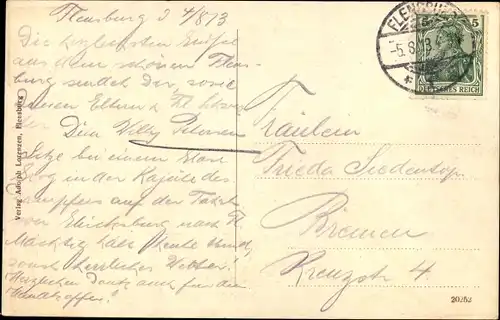 Flensburg 4/8 13
Die herzlichsten Grüße
aus dem schönen Flens-
burg sendet dir, sowie
deinen Eltern
Dein Willy Petersen
Sitze bei einem Glas
Grog in der Kajüte des
Dampfers auf der Fahrt
von Glücksburg nach Fl.
Mächtig kalt heute
sonst herrliches Wetter!
Herzlichen Dank auch für die
Verlag Adolph Lorenzen, Flensburg
FLENSBURG
-5.8.13
5 5
DEUTSCHES REICH
Fräulein
Frieda
Bremen
Kreuzstr 4
20752